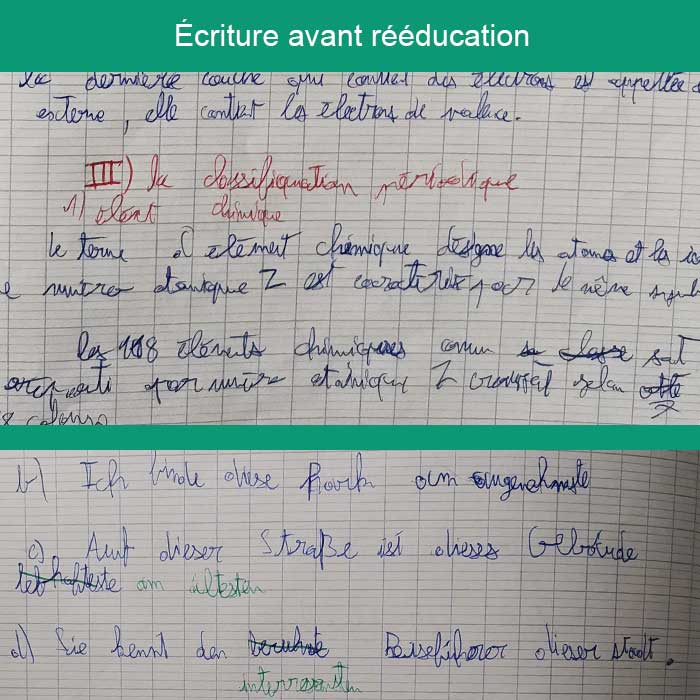 Écriture avant rééducation
la dernière couche qui contient des électrons est appellée
externe, elle contient les electrons de valence.
III) la classifiquation périodique
1) élément chimique
le terme d'element chimique désigne les atomes et les
numéro atomique Z est caractérisé par le même
les 118 éléments chimiques connu se classe sont
par numéro atomique Z croissant selon
b) Ich finde diese Park am angenehmste
c) Auf dieser Straße ist dieses Gebäude
lebhafteste am ältesten
d) Sie kennt den berühmte Reiseführer dieser stadt.
interessanten